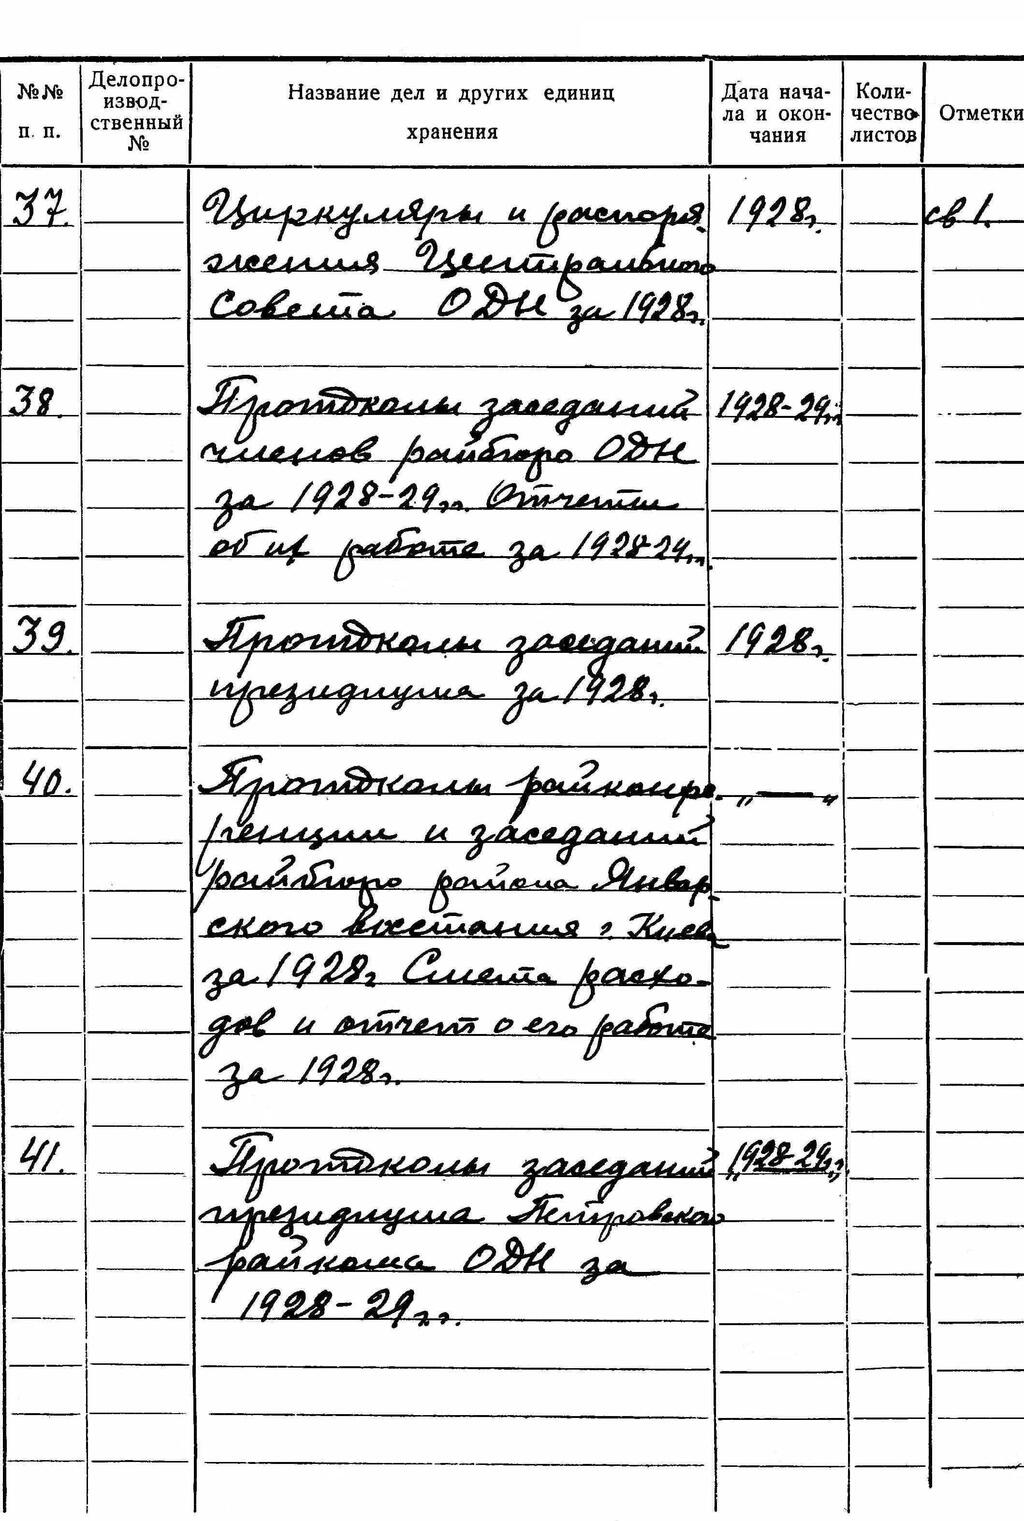 №№ п. п.
Делопроизводственный №
Название дел и других единиц хранения
Дата начала и окончания
Количество листов
Отметки
37. Циркуляры и распоря- 1928г. св 1.
жения Центрального
Совета ОДН за 1928г.
38. Протоколы заседаний 1928-29гг.
членов райбюро ОДН
за 1928-29гг. Отчеты
об их работе за 1928-29гг.
39. Протоколы заседаний 1928г.
президиума за 1928г.
40. Протоколы райконфе- „ — „
ренции и заседаний
райбюро района Январ-
ского восстания г. Киева
за 1928г Смета расхо-
дов и отчет о его работе
за 1928г.
41. Протоколы заседаний „1928-29гг„
президиума Петровского
райкома ОДН за
1928-29гг.